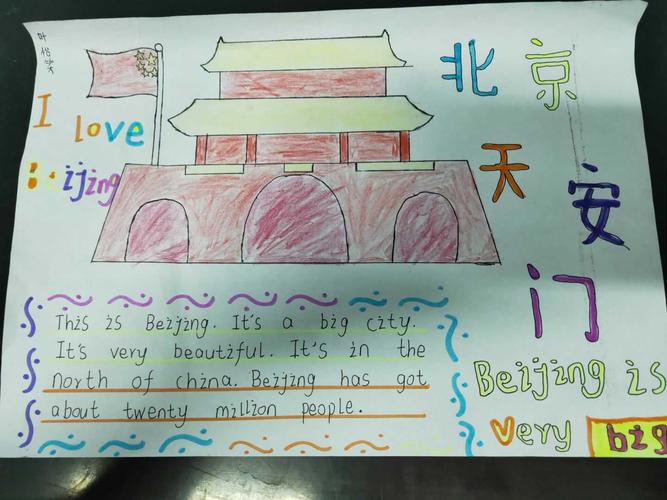 I love
Beijing
北京
天安门
This is Beijing. It's a big city.
It's very beautiful. It's in the
north of china. Beijing has got
about twenty million people.
Beijing is
very big